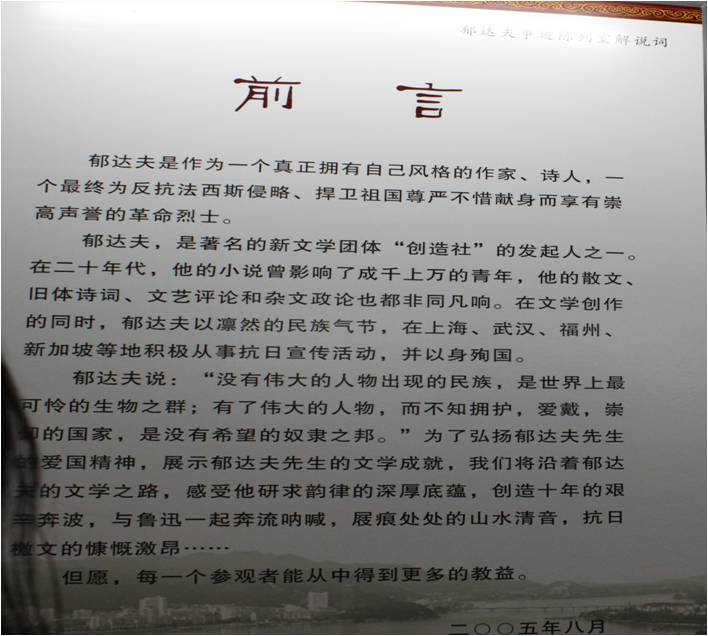 郁达夫事迹陈列室解说词
前 言
郁达夫是作为一个真正拥有自己风格的作家、诗人，一
个最终为反抗法西斯侵略、捍卫祖国尊严不惜献身而享有崇
高声誉的革命烈士。
郁达夫，是著名的新文学团体“创造社”的发起人之一。
在二十年代，他的小说曾影响了成千上万的青年，他的散文、
旧体诗词、文艺评论和杂文政论也都非同凡响。在文学创作
的同时，郁达夫以凛然的民族气节，在上海、武汉、福州、
新加坡等地积极从事抗日宣传活动，并以身殉国。
郁达夫说：“没有伟大的人物出现的民族，是世界上最
可怜的生物之群；有了伟大的人物，而不知拥护，爱戴，崇
仰的国家，是没有希望的奴隶之邦。”为了弘扬郁达夫先生
的爱国精神，展示郁达夫先生的文学成就，我们将沿着郁达
夫的文学之路，感受他研求韵律的深厚底蕴，创造十年的艰
辛奔波，与鲁迅一起奔流呐喊，屐痕处处的山水清音，抗日
檄文的慷慨激昂……
但愿，每一个参观者能从中得到更多的教益。
二〇〇五年八月